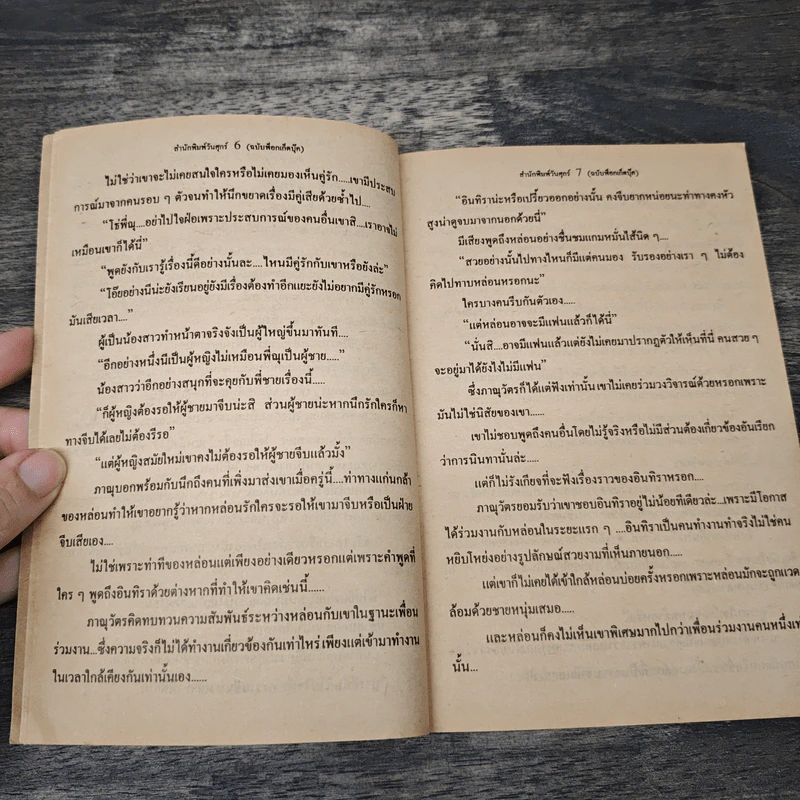 สำนักพิมพ์วันศุกร์ 6 (ฉบับพ็อกเก็ตบุ๊ค)
ไม่ใช่ว่าเขาจะไม่เคยสนใจใครหรือไม่เคยมองเห็นคู่รัก.....เขามีประสบ
การณ์มาจากคนรอบ ๆ ตัวจนทำให้นึกขยาดเรื่องมีคู่เสียด้วยซ้ำไป....
“โธ่พี่ณุ....อย่าไปใจฝ่อเพราะประสบการณ์ของคนอื่นเขาสิ....เราอาจไม่
เหมือนเขาก็ได้นี่”
“พูดยังกับเรารู้เรื่องนี้ดีอย่างนั้นละ....ไหนมีคู่รักกับเขาหรือยังล่ะ”
“โอ๊ยอย่างนี่น่ะยังเรียนอยู่ยังมีเรื่องต้องทำอีกแยะยังไม่อยากมีคู่รักหรอก
มันเสียเวลา....”
ผู้เป็นน้องสาวทำหน้าตาจริงจังเป็นผู้ใหญ่ขึ้นมาทันที....
“อีกอย่างหนึ่งนี่เป็นผู้หญิงไม่เหมือนพี่ณุเป็นผู้ชาย.....”
น้องสาวว่าอีกอย่างสนุกที่จะคุยกับพี่ชายเรื่องนี้.....
“ก็ผู้หญิงต้องรอให้ผู้ชายมาจีบน่ะสิ ส่วนผู้ชายน่ะหากนึกรักใครก็หา
ทางจีบได้เลยไม่ต้องรีรอ”
“แต่ผู้หญิงสมัยใหม่เขาคงไม่ต้องรอให้ผู้ชายจีบแล้วมั้ง”
ภาณุบอกพร้อมกับนึกถึงคนที่เพิ่งมาส่งเขาเมื่อครู่นี้....ท่าทางแก่นกล้า
ของหล่อนทำให้เขาอยากรู้ว่าหากหล่อนรักใครจะรอให้เขามาจีบหรือเป็นฝ่าย
จีบเสียเอง....
ไม่ใช่เพราะท่าทีของหล่อนแต่เพียงอย่างเดียวหรอกแต่เพราะคำพูดที่
ใคร ๆ พูดถึงอินทิราด้วยต่างหากที่ทำให้เขาคิดเช่นนี้......
ภาณุวัตรคิดทบทวนความสัมพันธ์ระหว่างหล่อนกับเขาในฐานะเพื่อน
ร่วมงาน...ซึ่งความจริงก็ไม่ได้ทำงานเกี่ยวข้องกันเท่าไหร่ เพียงแต่เข้ามาทำงาน
ในเวลาใกล้เคียงกันเท่านั้นเอง......
สำนักพิมพ์วันศุกร์ 7 (ฉบับพ็อกเก็ตบุ๊ค)
“อินทิราน่ะหรือเปรี้ยวออกอย่างนั้น คงจีบยากหน่อยนะท่าทางคงหัว
สูงน่าดูจบมาจากนอกด้วยนี่”
มีเสียงพูดถึงหล่อนอย่างชื่นชมแกมหมั่นไส้นิด ๆ....
“สวยอย่างนั้นไปทางไหนก็มีแต่คนมอง รับรองอย่างเรา ๆ ไม่ต้อง
คิดไปทาบหล่อนหรอกนะ”
ใครบางคนรีบกันตัวเอง.....
“แต่หล่อนอาจจะมีแฟนแล้วก็ได้นี่”
“นั่นสิ....อาจมีแฟนแล้วแต่ยังไม่เคยมาปรากฏตัวให้เห็นที่นี่ คนสวย ๆ
จะอยู่มาได้ยังไงไม่มีแฟน”
ซึ่งภาณุวัตรก็ได้แต่ฟังเท่านั้น เขาไม่เคยร่วมวงวิจารณ์ด้วยหรอกเพราะ
มันไม่ใช่นิสัยของเขา......
เขาไม่ชอบพูดถึงคนอื่นโดยไม่รู้จริงหรือไม่มีส่วนต้องเกี่ยวข้องอันเรียก
ว่าการนินทานั่นล่ะ.....
แต่ก็ไม่รังเกียจที่จะฟังเรื่องราวของอินทิราหรอก....
ภาณุวัตรยอมรับว่าเขาชอบอินทิราอยู่ไม่น้อยทีเดียวล่ะ...เพราะมีโอกาส
ได้ร่วมงานกับหล่อนในระยะแรก ๆ ....อินทิราเป็นคนทำงานทำจริงไม่ใช่คน
หยิบโหย่งอย่างรูปลักษณ์สวยงามที่เห็นภายนอก.....
แต่เขาก็ไม่เคยได้เข้าใกล้หล่อนบ่อยครั้งหรอกเพราะหล่อนมักจะถูกแวด
ล้อมด้วยชายหนุ่มเสมอ.....
และหล่อนก็คงไม่เห็นเขาพิเศษมากไปกว่าเพื่อนร่วมงานคนหนึ่งเท่
นั้น...